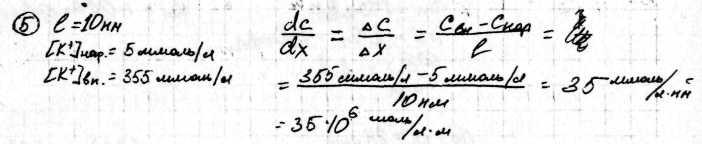 ⑤ l = 10 нм
[K⁺]нар. = 5 ммоль/л
[K⁺]вн. = 355 ммоль/л
dc/dx = ΔC/Δx = (Cвн – Cнар)/l =
= (355 ммоль/л – 5 ммоль/л)/10 нм = 35 ммоль/л·нм
= 35·10⁶ моль/л·м